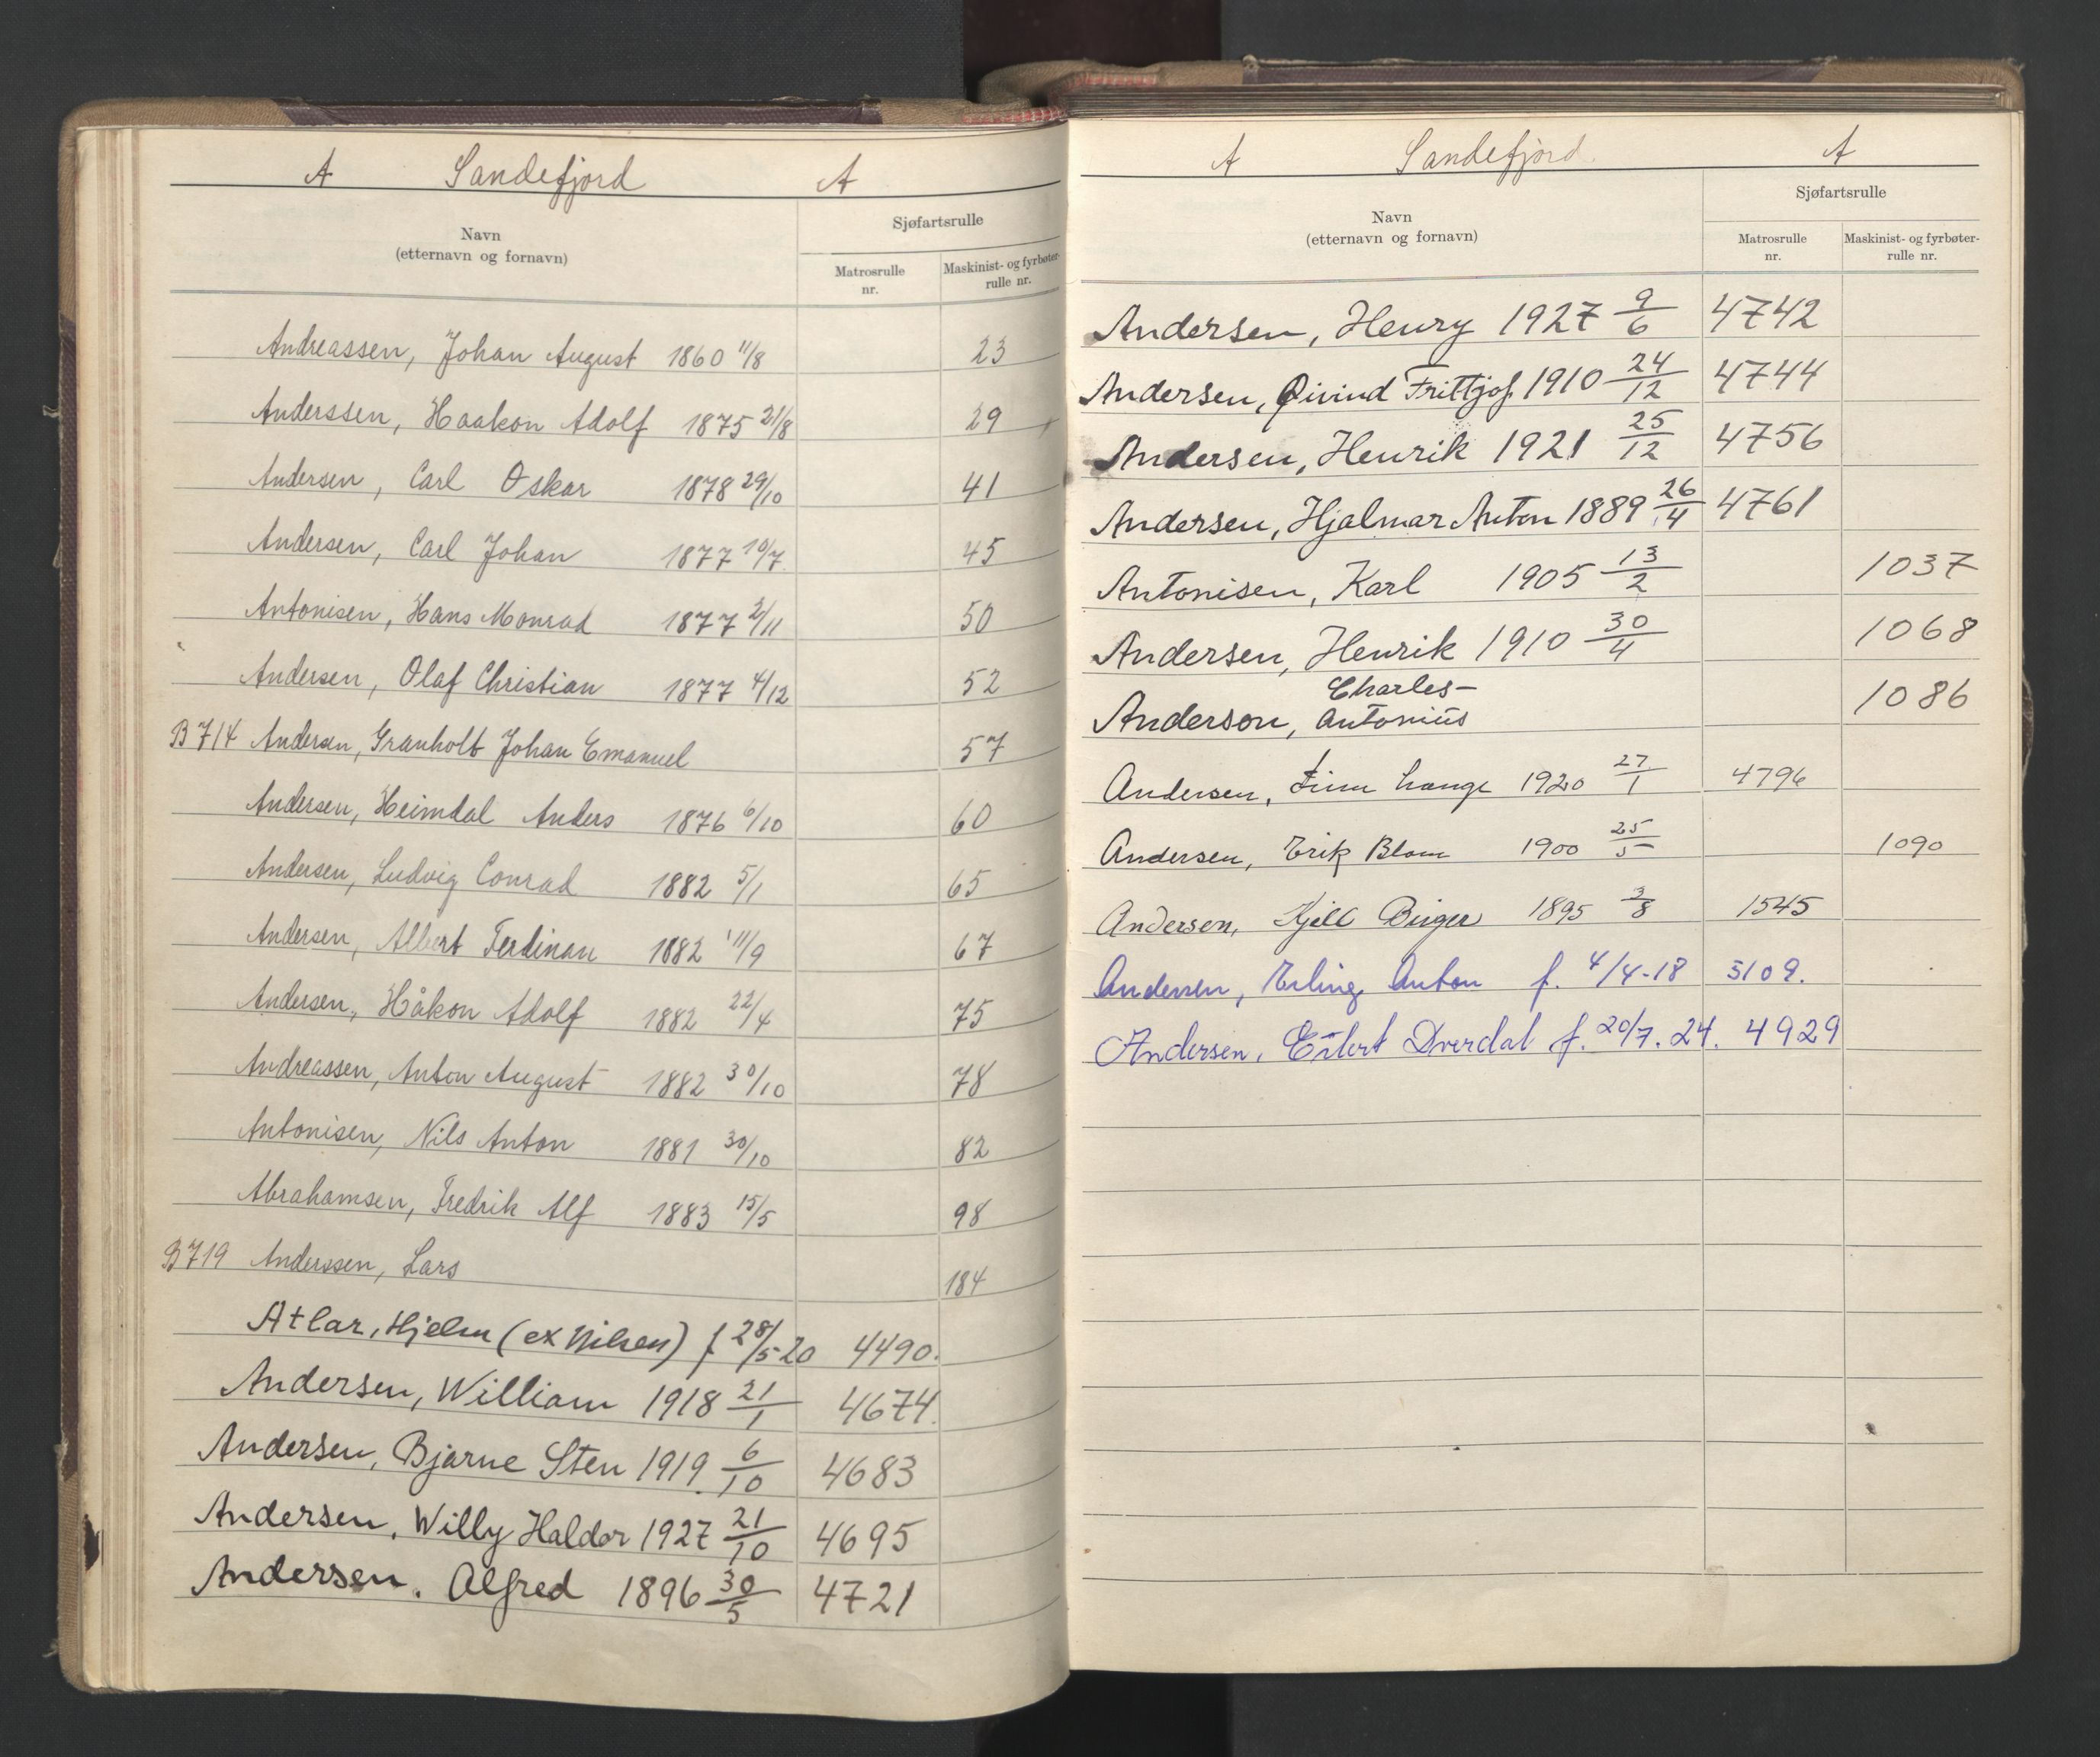 A Sandefjord A
Navn
(etternavn og fornavn)
Sjøfartsrulle
Matrosrulle
nr.
Maskinist- og fyrbøter-
rulle nr.
Andreassen, Johan August 1860 11/8 23
Anderssen, Haakon Adolf 1875 21/8 29
Andersen, Carl Oskar 1878 29/10 41
Andersen, Carl Johan 1877 10/7 45
Antonisen, Hans Monrad 1877 2/11 50
Andersen, Olaf Christian 1877 4/12 52
B714 Andersen, Granholt Johan Emanuel 57
Andersen, Heimdal Anders 1876 6/10 60
Andersen, Ludvig Conrad 1882 5/1 65
Andersen, Albert Ferdinan 1882 11/9 67
Andersen, Håkon Adolf 1882 22/4 75
Andreassen, Anton August 1882 30/10 78
Antonisen, Nils Anton 1881 30/10 82
Abrahamsen, Fredrik Alf 1883 15/5 98
B719 Anderssen, Lars 184
Atlar, Hjelm (ex Nilsen) f 28/5-20 4490.
Andersen, William 1918 21/1 4674.
Andersen, Bjarne Sten 1919. 6/10 4683
Andersen, Willy Haldor 1927 21/10 4695
Andersen. Alfred 1896 30/5 4721
A Sandefjord A
Navn
(etternavn og fornavn)
Sjøfartsrulle
Matrosrulle
nr.
Maskinist- og fyrbøter-
rulle nr.
Andersen, Henry 1927 9/6 4742
Andersen, Øivind Frittjof 1910 24/12 4744
Andersen, Henrik 1921 25/12 4756
Andersen, Hjalmar Anton 1889 26/4 4761
Antonisen, Karl 1905 13/2 1037
Andersen, Henrik 1910 30/4 1068
Charles-
Anderson, Antonius 1086
Andersen, Finn Lange 1920 27/1 4796
Andersen, Erik Blom 1900 25/5 1090
Andersen, Kjell Birger 1895 3/8 1545
Andersen, Erling Anton f. 4/4-18 3109.
Andersen, Eilert Dverdal f. 20/7. 24. 4929